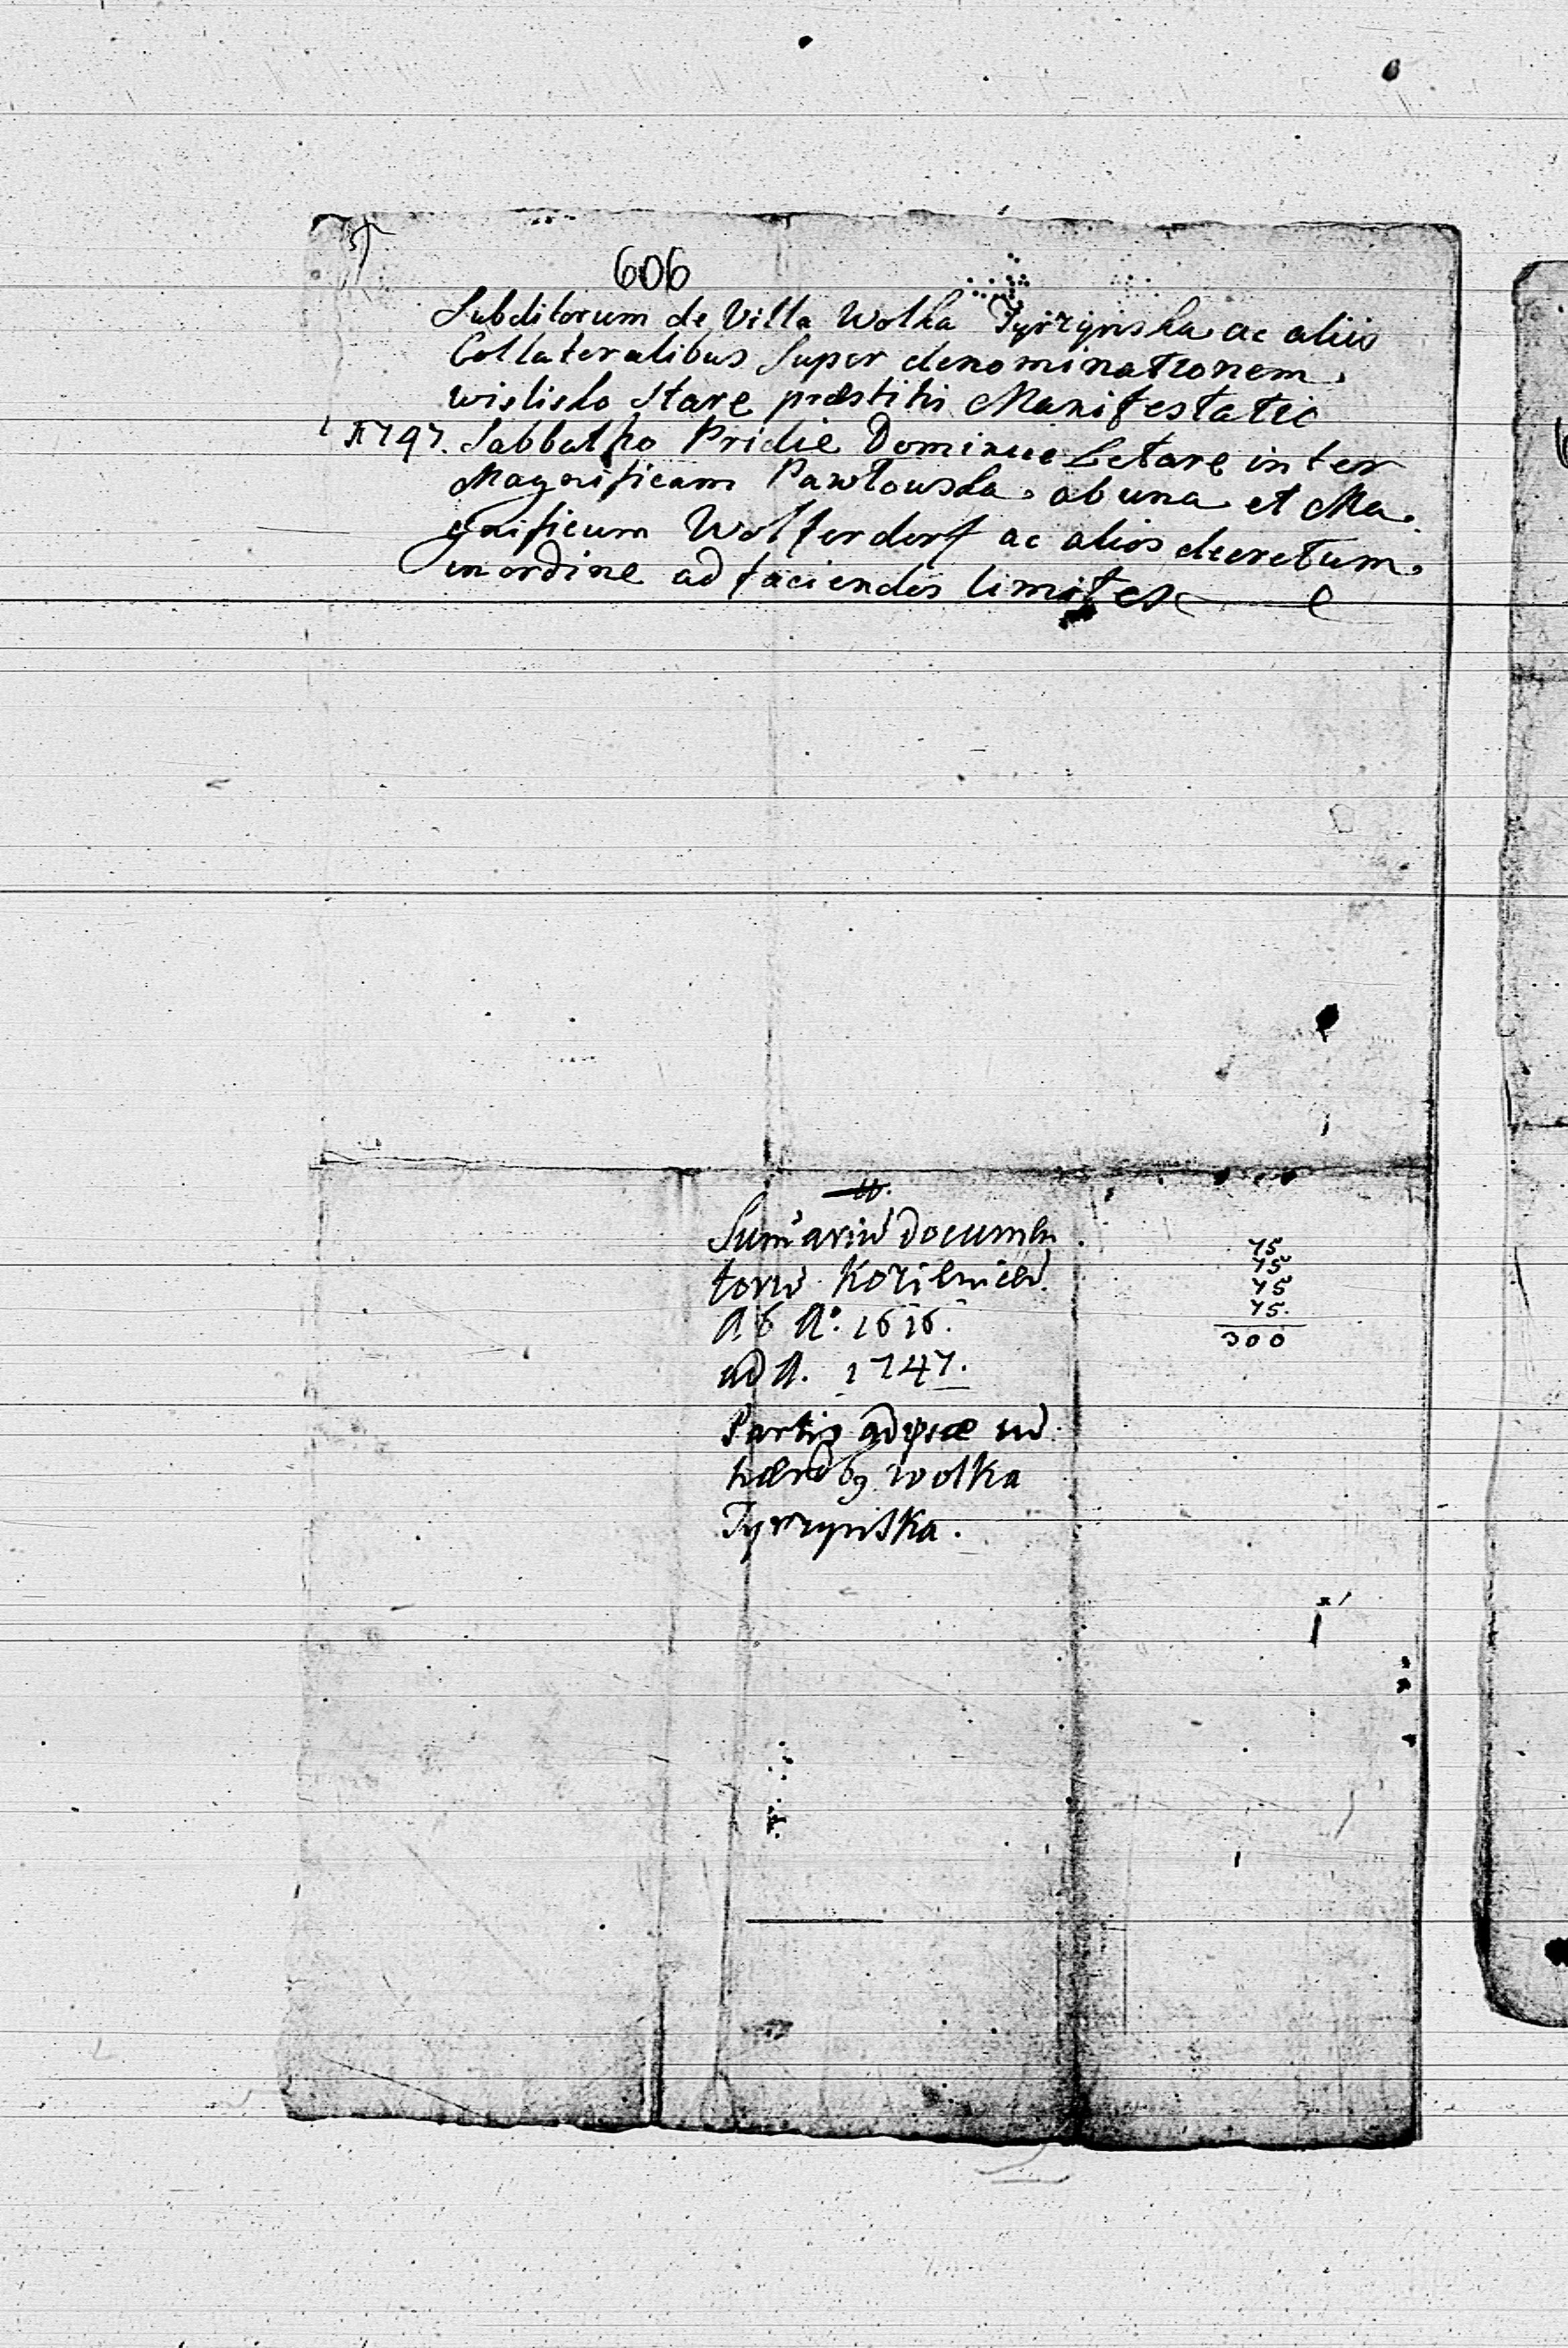 606
Subditorum de Villa Wolka Tyrzynska ac aliis
Collateralibus Super denominationem
wislisko Stare præstitis Manifestatio
1747. Sabbatho Pridie Dominicæ Letare inter
Magnificam Pawlouska ab una et Ma
gnificum Wolferdorf ac alios decretum
in ordine ad faciendos limites
Sum̃ariũ Documen
torũ Kozienicen̄.
Ab A°. 1616.
ad A. 1747.
Partis adversæ
Wolka
Tyrzynska.
75
75
75
75.
300